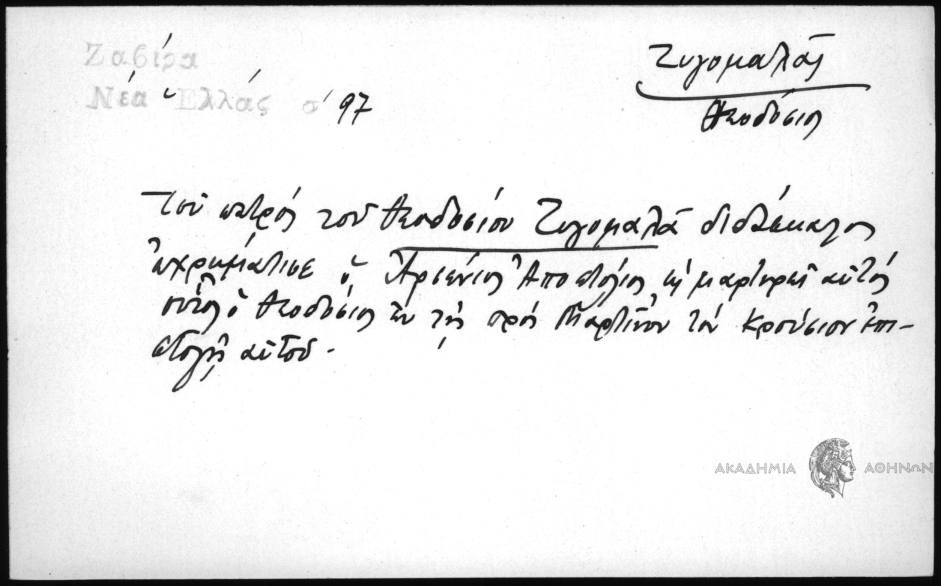 Ζαβίρα
Νέα Ἑλλάς σ' 97
Ζυγομαλᾶς
Θεοδόσιος
Τοῦ πατρός τοῦ Θεοδοσίου Ζυγομαλᾶ διδάσκαλος
ἐχρημάτισε ὁ Ἀρσένιος Ἀποστόλης ὡς μαρτυρεῖ αὐτός
οὗτος ὁ Θεοδόσιος ἐν τῇ πρός Μαρτῖνον τόν Κρούσιον ἐπι-
στολῇ αὐτοῦ.
ΑΚΑΔΗΜΙΑ ΑΘΗΝΩΝ